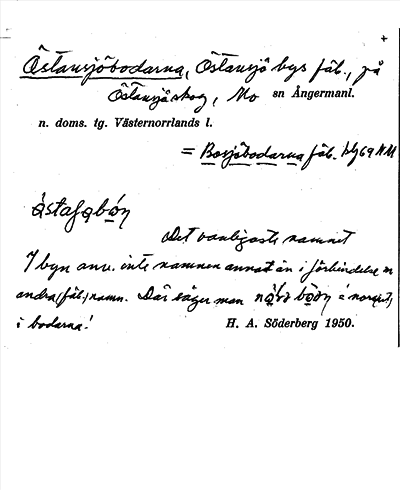 Östansjöbodarna, Östansjö bys fäb., på
Östansjöskog, Mo sn Ångermanl.
n. doms. tg. Västernorrlands l.
= Bosjöbodarna fäb. blg 69 NM
Det vanligaste namnet
I byn anv. inte namnen annat än i förbindelse m
andra (fäb.) namn. Där säger man
i bodarna!
H. A. Söderberg 1950.